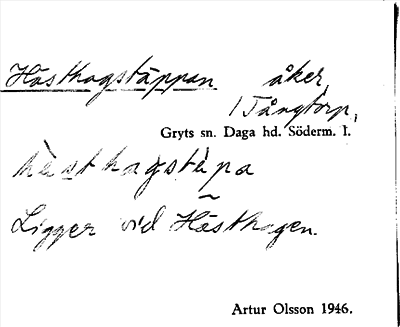 Hästhagstäppan åker
1 Tångtorp,
Gryts sn. Daga hd. Söderm. l.
hèsthagstèpa
Ligger vid Hästhagen.
Artur Olsson 1946.